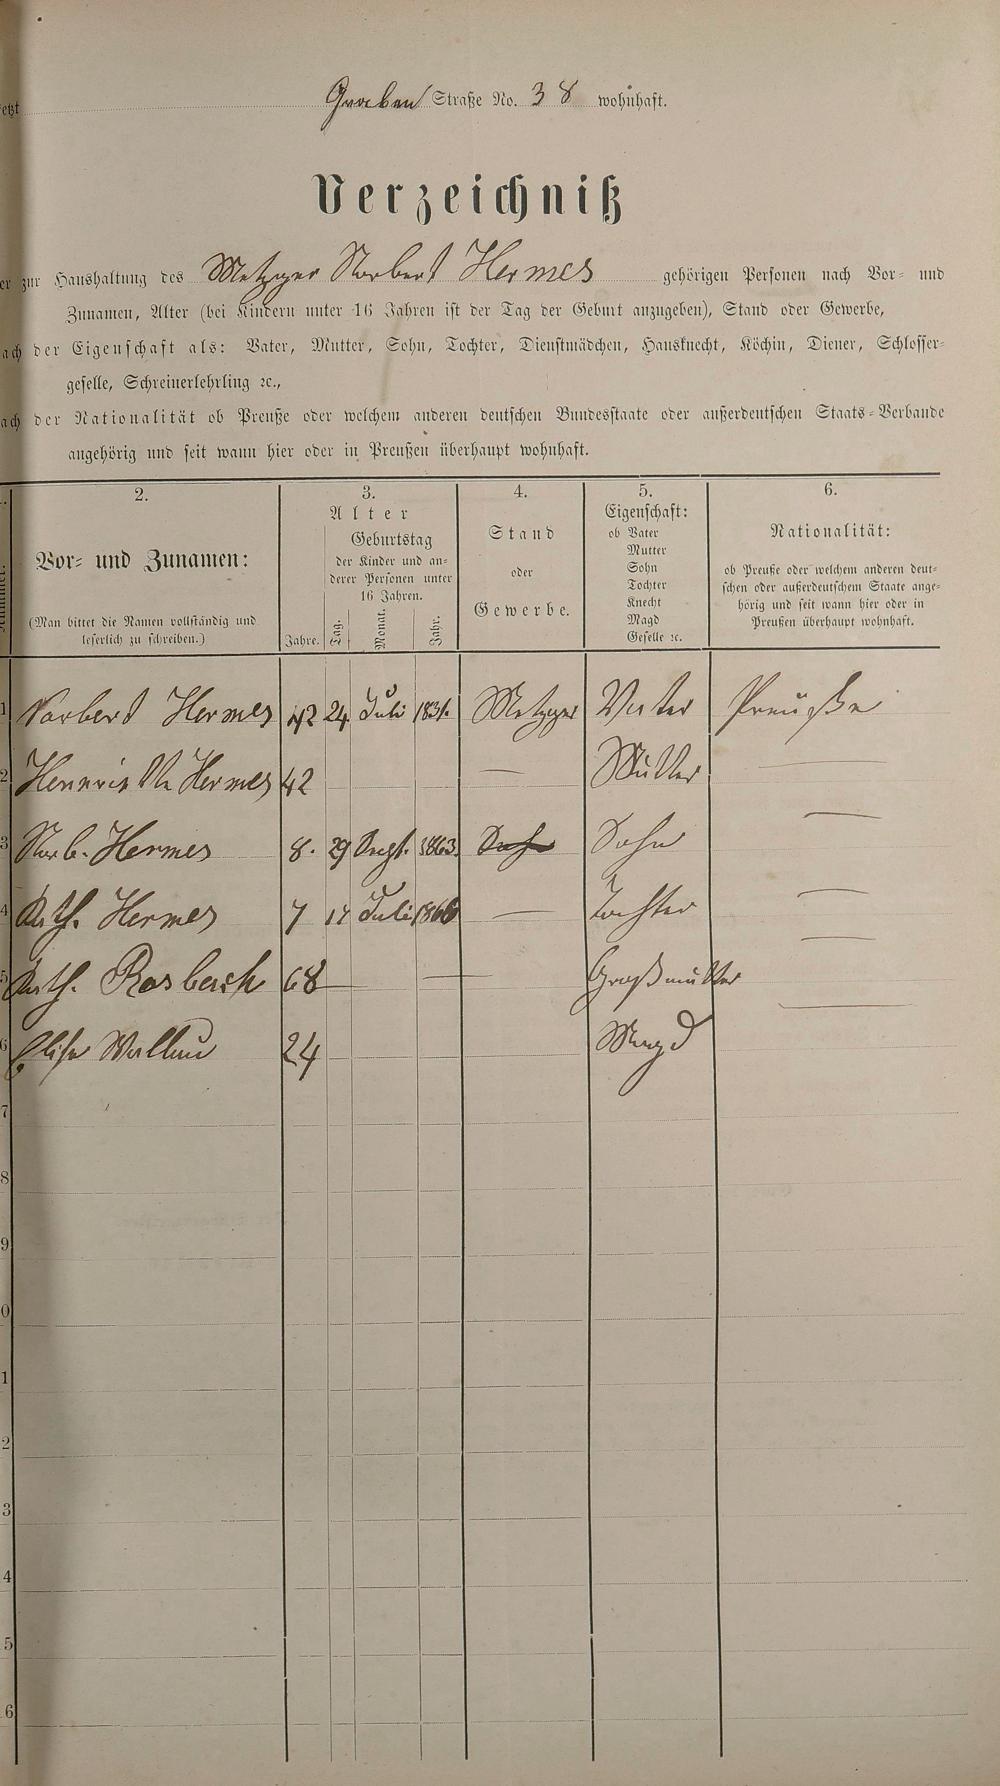 etzt Graben Straße No. 38 wohnhaft.
Verzeichniß
er zur Haushaltung des Metzger Norbert Hermes gehörigen Personen nach Vor- und
Zunamen, Alter (bei Kindern unter 16 Jahren ist der Tag der Geburt anzugeben), Stand oder Gewerbe,
ach der Eigenschaft als: Vater, Mutter, Sohn, Tochter, Dienstmädchen, Hausknecht, Köchin, Diener, Schlosser-
geselle, Schreinerlehrling ꝛc.,
ach der Nationalität ob Preuße oder welchem anderen deutschen Bundesstaate oder außerdeutschen Staats-Verbande
angehörig und seit wann hier oder in Preußen überhaupt wohnhaft.
2.
Vor- und Zunamen:
(Man bittet die Namen vollständig und
leserlich zu schreiben.)
3.
Alter
Jahre.
Geburtstag
der Kinder und an-
derer Personen unter
16 Jahren.
Tag. Monat. Jahr.
4.
Stand
oder
Gewerbe.
5.
Eigenschaft:
ob Vater
Mutter
Sohn
Tochter
Knecht
Magd
Geselle ꝛc.
6.
Nationalität:
ob Preuße oder welchem anderen deut-
schen oder außerdeutschem Staate ange-
hörig und seit wann hier oder in
Preußen überhaupt wohnhaft.
1 Norbert Hermes 42 24 Juli 1831. Metzger Vater Preuße
2 Henriette Hermes 42 — Mutter —
3 Norb. Hermes 8. 29 Sept. 1863. Sohn Sohn —
4 Kath. Hermes 7 17 Juli 1866 — Tochter —
5 Kath. Rosbach 68 — — Großmutter —
6 Elise 24 Magd —
7
8
9
0
1
2
3
4
5
6